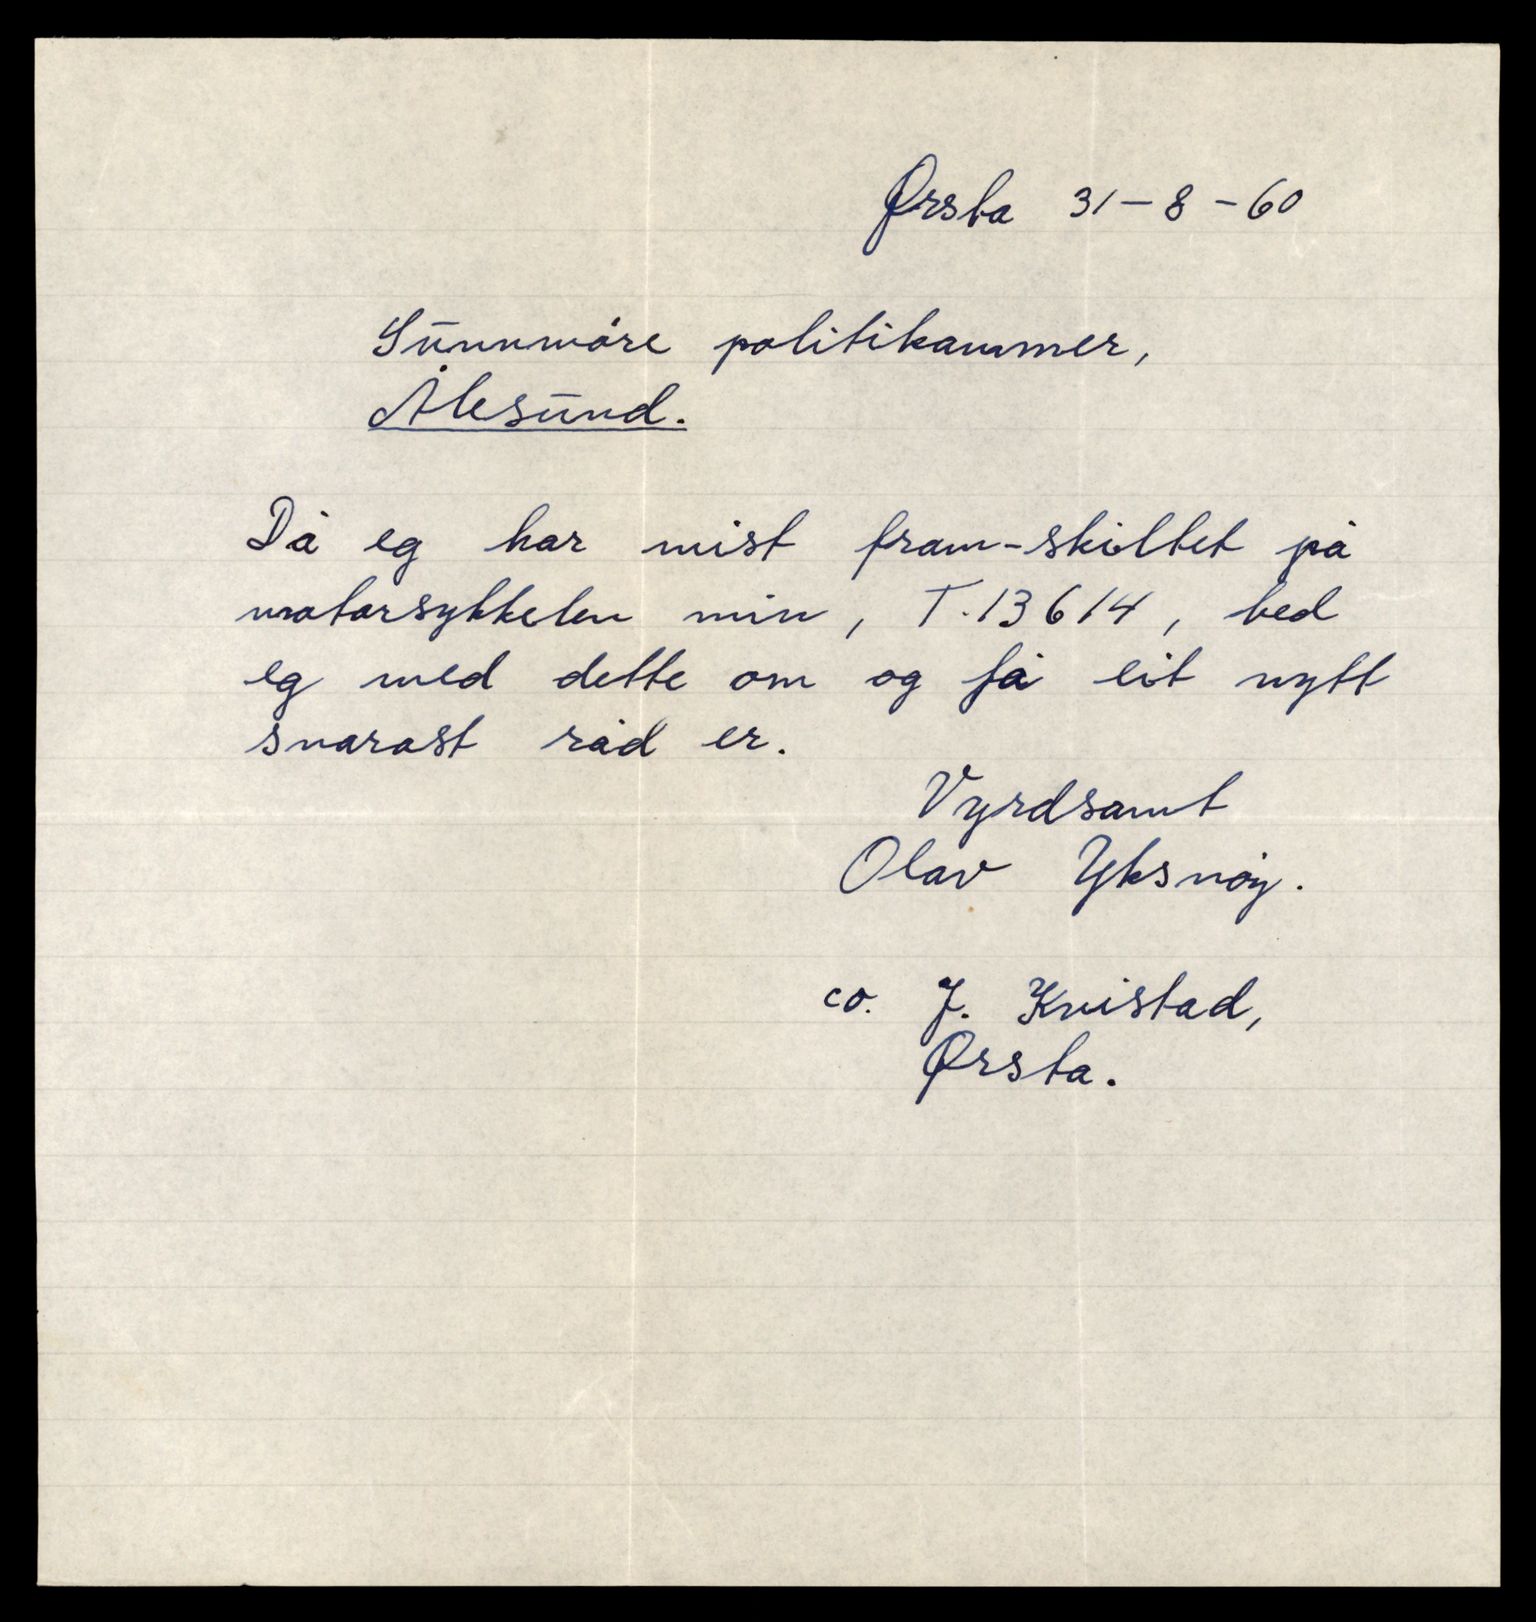 Ørsta 31-8-60
Sunnmøre politikammer,
Ålesund.
Då eg har mist fram-skiltet på
motorsykkelen min, T.13614, bed
eg med dette om og få eit nytt
snarast råd er.
Vyrdsamt
Olav Yksnøy.
co. J. Kvistad,
Ørsta.